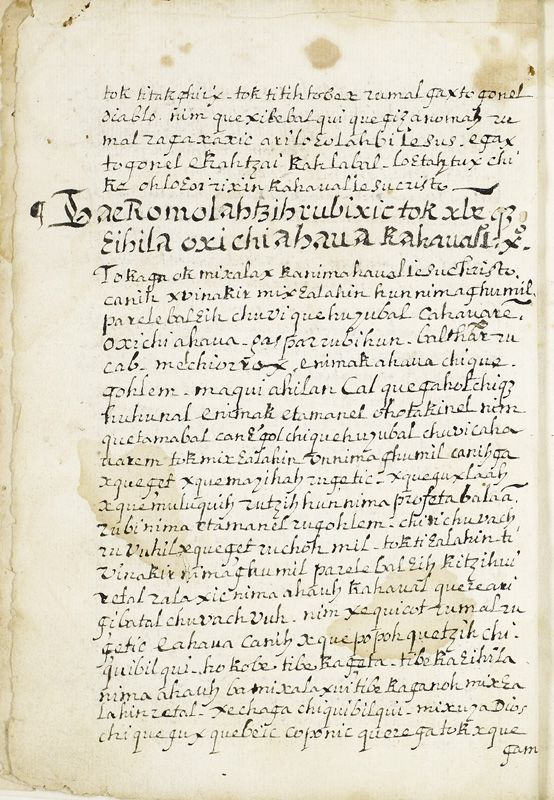 tok titakchijx - tok titihtober rumal gaxtogonel
diablo. nim quexibebal qui quegizanomah ru
mal ragaxaxic ariloɛolahbi Iesus - egax
togonel ekahtzai kahlabal - loɛtahtux chi
ka ohloɛorrixin kahaual Iesucristo
¶ Vae Romolahtzih rubixic tok xlx qz
ɛihila oxi chi ahaua kahaual I. xº.
Tokaga ok mixalax kanimahaual Iesu christo.
canih xvinakir mixɛalahin hun nima ghumil.
parelebal ɛih chuvi quehuyubal cahauarē,
oxi chi ahaua - gaspar rubihun - balthār ru
cab - melchior rox, enimak ahaua chique
gohlem - maqui ahilan Cal quegahol chiqz
huhunal enimak etamanel ohotakinel nim
quetamabal can ɛgol chi quehuyubal chuvi caha
uarem tok mixɛalahin hun nima ghumil canihga
xqueget xquemayihah rugetic - xqueguxlaah
xquemuluquih rutzih hun nima profeta balaā,
rubi nima etamanel rugohlem - chiri chuvach
ru vuhil xqueget ruchoh mil - tok tiɛalahin ti
vinakir nima ghumil parelebal ɛih kitzih ui
retal ralaxic nima ahauh kahaual quere ari
gibatal chuvach vuh - nim xequicot rumal ru
getic eahaua canih xquepopoh quetzih chi-
quibil qui - hokobe tibe kageta - tibe kaɛihila
nima ahauh ba mixalax ui tibe kaganoh mixɛa
lahin retal - xechaga chiquibil qui - mix uya Dios
chi quegux quebeic coponic querega tok xque
gam